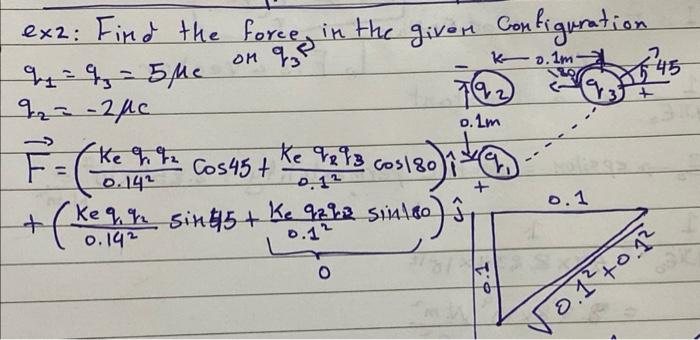 ex2: Find the force in the given Configuration
on q₃
q₁ = q₃ = 5 μc
q₂ = -2 μc
F = (Ke q₁ q₂ / 0.14² cos45 + Ke q₂ q₃ / 0.1² cos180) î
+ (Ke q₁ q₂ / 0.14² sin45 + Ke q₂ q₃ / 0.1² sin180) ĵ
0
0.1m
- q₂
q₃ 45
+
0.1m
q₁
+
0.1
0.1
√0.1² + 0.1²